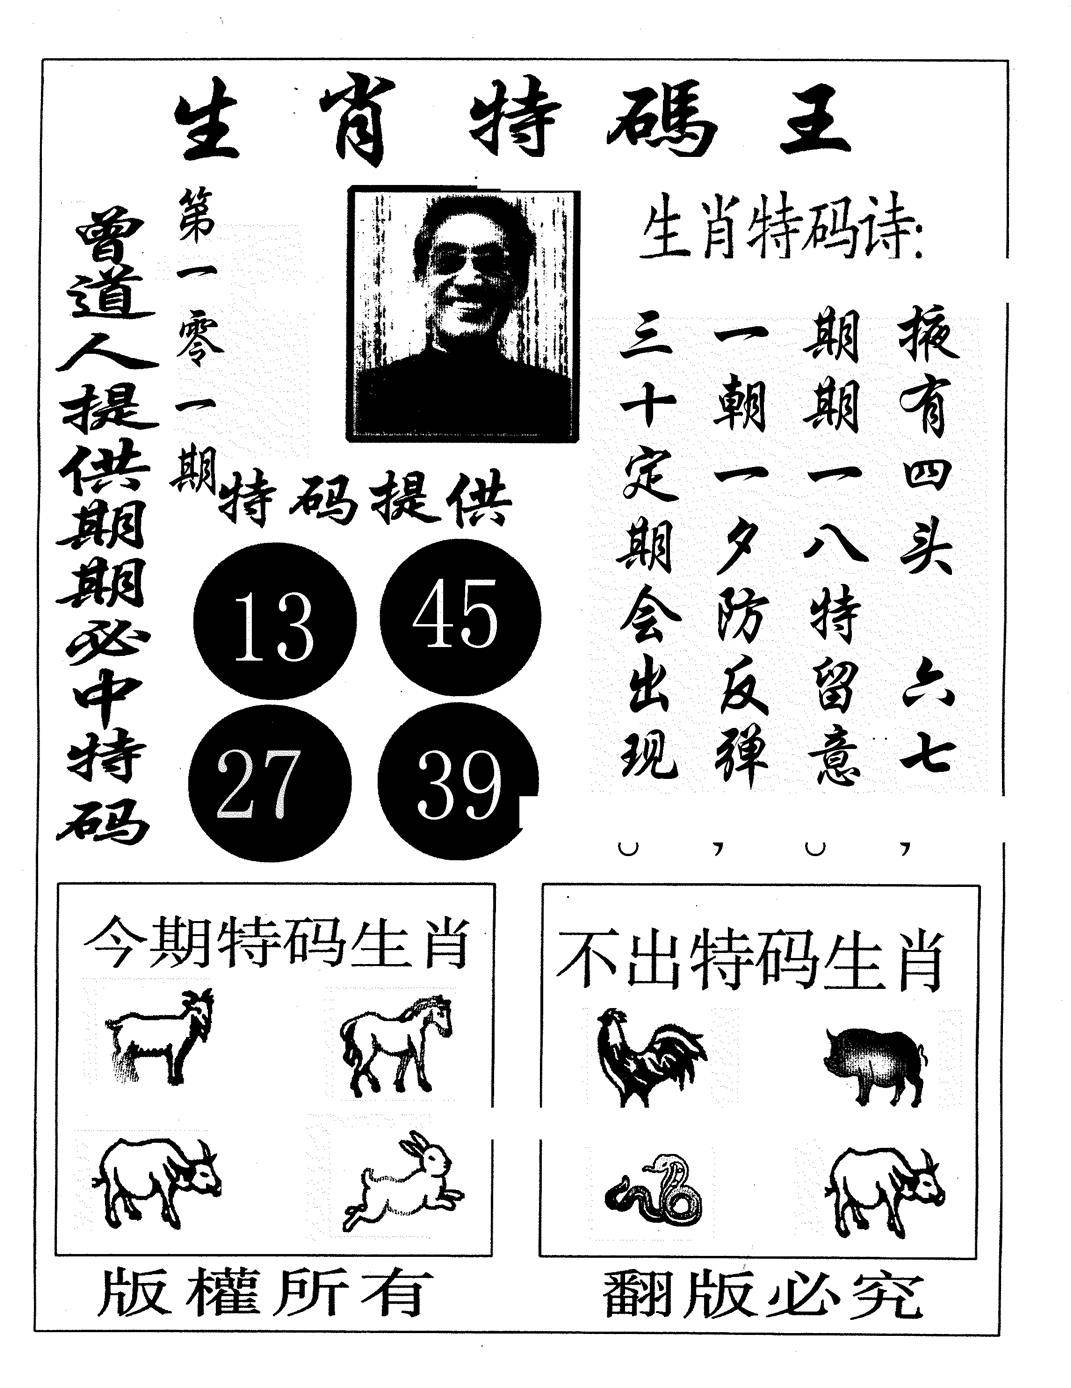 生肖特碼王
曾道人提供期期必中特码
第一零一期
特码提供
13 45
27 39
生肖特码诗:
掖有四头 六七，
期期一八特留意。
一朝一夕防反弹，
三十定期会出现。
今期特码生肖
不出特码生肖
版權所有
翻版必究